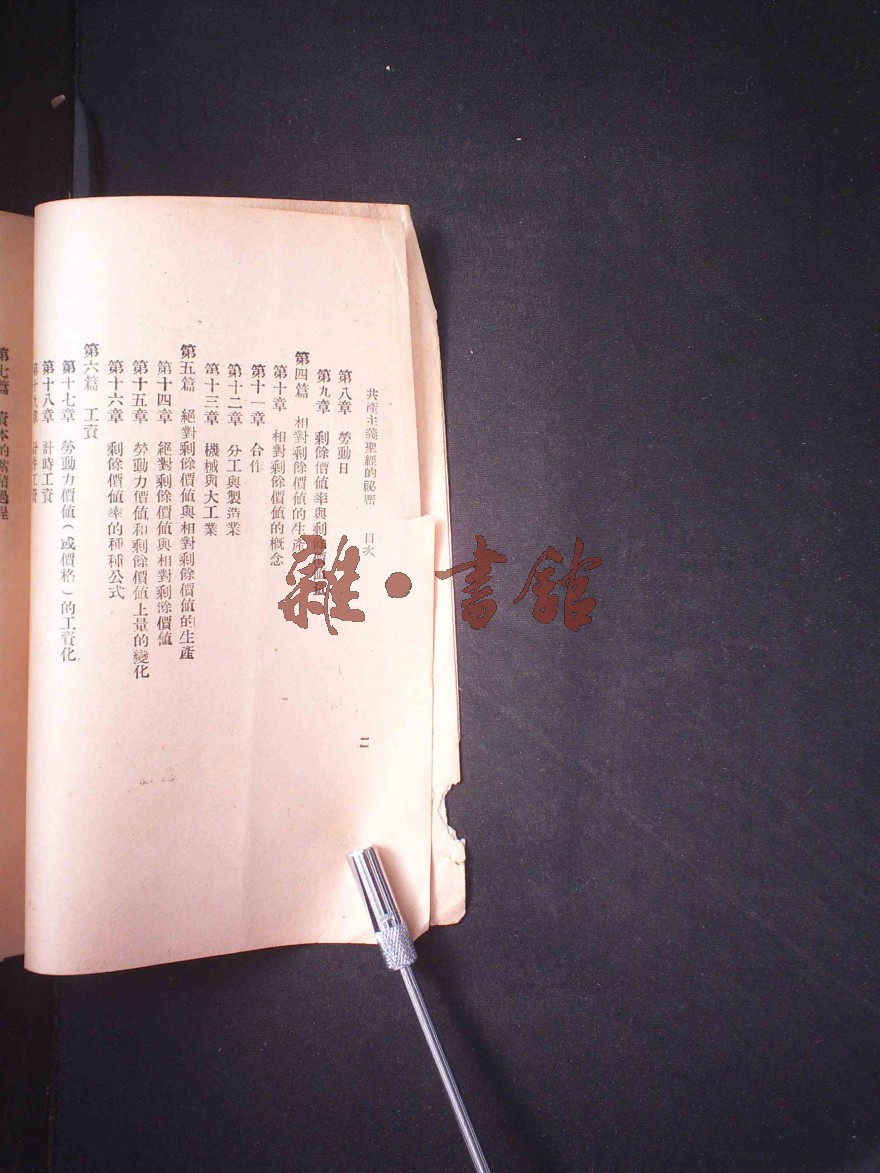 共產主義聖經的秘密 目次
二
第八章 勞動日
第九章 剩餘價値率與剩餘價値
第四篇 相對剩餘價値的生產
第十章 相對剩餘價値的概念
第十一章 合作
第十二章 分工與製造業
第十三章 機械與大工業
第五篇 絕對剩餘價値與相對剩餘價値的生產
第十四章 絕對剩餘價値與相對剩餘價値
第十五章 勞動力價値和剩餘價値上量的變化
第十六章 剩餘價値率的種種公式
第六篇 工資
第十七章 勞動力價値(或價格)的工資化
第十八章 計時工資
第七篇 資本的累積過程
雜·書館